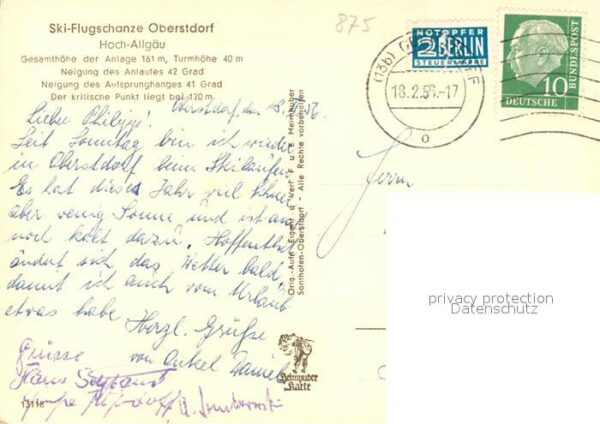 Ski-Flugschanze Oberstdorf
Hoch-Allgäu
Gesamthöhe der Anlage 161 m, Turmhöhe 40 m
Neigung des Anlaufes 42 Grad
Neigung des Aufsprunghanges 41 Grad
Der kritische Punkt liegt bei 120 m.
875
NOTOPFER
2 BERLIN
STEUERMARKE
(13b)
18.2.56.-17
o
10
DEUTSCHE
BUNDESPOST
Oberstdorf, den 18. 56
Liebe Philipp!
Seit Sonntag bin ich wieder
in Oberstdorf beim Skilaufen.
Es hat dieses Jahr viel Schnee
aber wenig Sonne und ist
noch kalt dazu. Hoffentlich
ändert sich das Wetter bald,
damit ich auch vom Urlaub
etwas habe.
Herzl. Grüße
von Onkel Daniel
Grüsse
Hans
Herrn
Orig.-Aufn. Eigent. u. Verl. F. u. E. Heimhuber
Sonthofen-Oberstdorf - Alle Rechte vorbehalten
Heimhuber
Karte
13116
privacy protection
Datenschutz